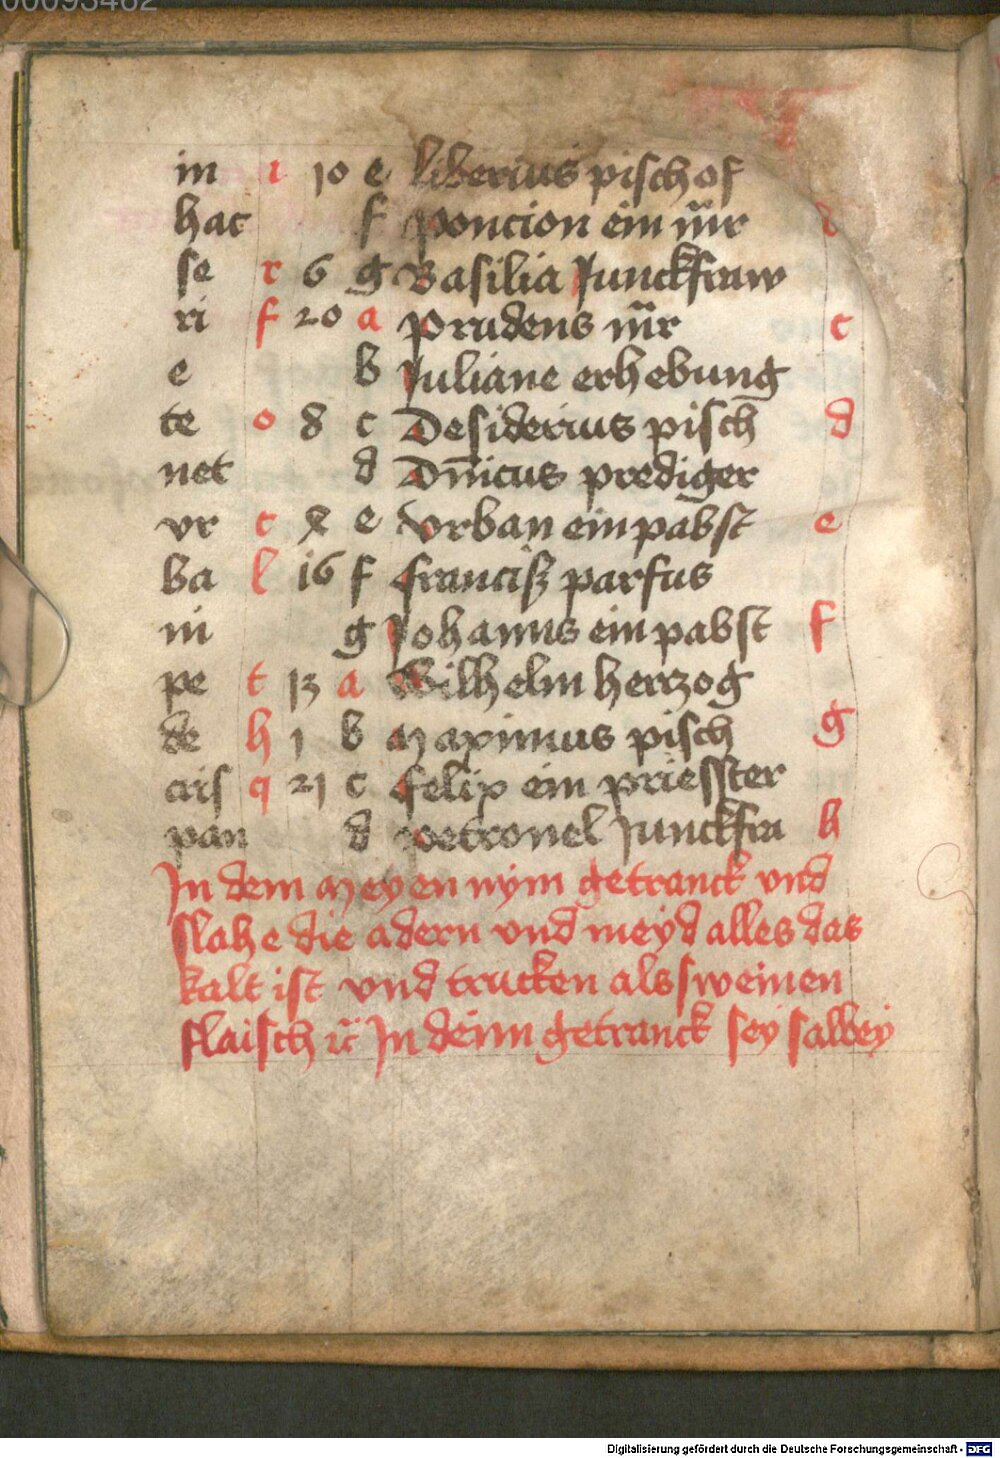 00093482
in ı 10 e liberius pischof
hac f Poncion ein mr̄ b
se r 6 g Basilia Junckfraw
ri f 20 a Prudens mr̄ c
e b Juliane erhebung
te o 8 c Desiderius pisch d
net d Dn̄icus prediger
vr c e Vrban ein pabst e
ba l 16 f francisz parfus
in g Johannis ein pabst f
pe t 13 a Wilhelm herczog
de h 1 b Maximus pisch g
cris q 21 c felix ein priesster
pan d petronel Junckfra h
In dem Meyen nym getranck vnd
slahe die adern vnd meyd alles das
kalt ist vnd trucken als sweinen
flaisch ꝛc̄ In deinn getranck sey salbey
Digitalisierung gefördert durch die Deutsche Forschungsgemeinschaft - DFG